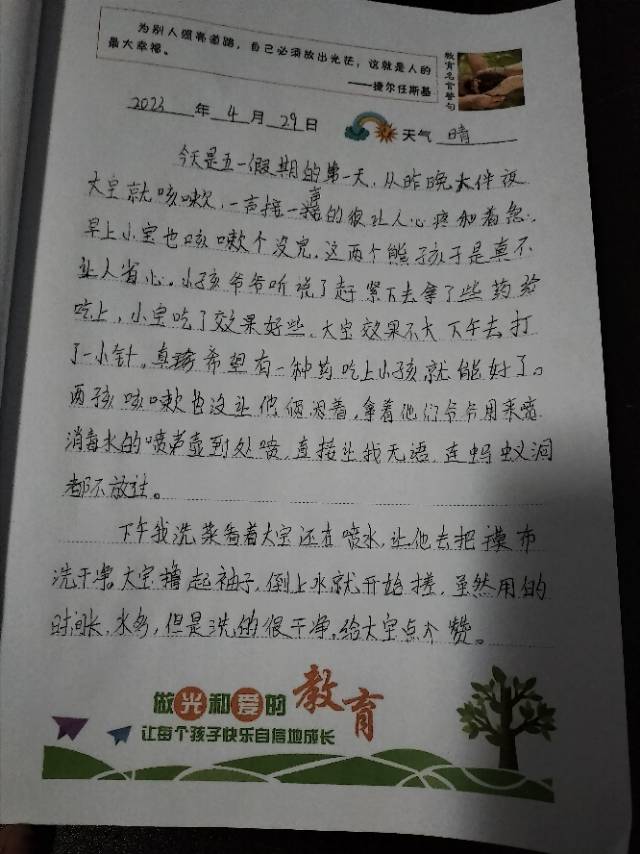 为别人照亮道路，自己必须放出光茫，这就是人的
最大幸福。
——捷尔任斯基
教育名言警句
2023年4月29日
天气 晴
今天是五一假期的第一天，从昨晚大伴夜
大宝就咳嗽，一声接一声的很让人心疼加着急。
早上小宝也咳嗽个没完，这两个熊孩子是真不
让人省心。小孩爷爷听说了赶紧下去拿了些药给
吃上，小宝吃了效果好些，大宝效果不大下午去打
了一小针。真希望有一种药吃上小孩就能好了。
两孩咳嗽也没让他俩闲着，拿着他们爷爷用来喷
消毒水的喷壶到处喷，直接让我无语，连蚂蚁洞
都不放过。
下午我洗菜看着大宝还在喷水，让他去把抹布
洗干净。大宝撸起袖子，倒上水就开始搓，虽然用的
时间长，水多，但是洗的很干净，给大宝点个赞。
做光和爱的教育
让每个孩子快乐自信地成长